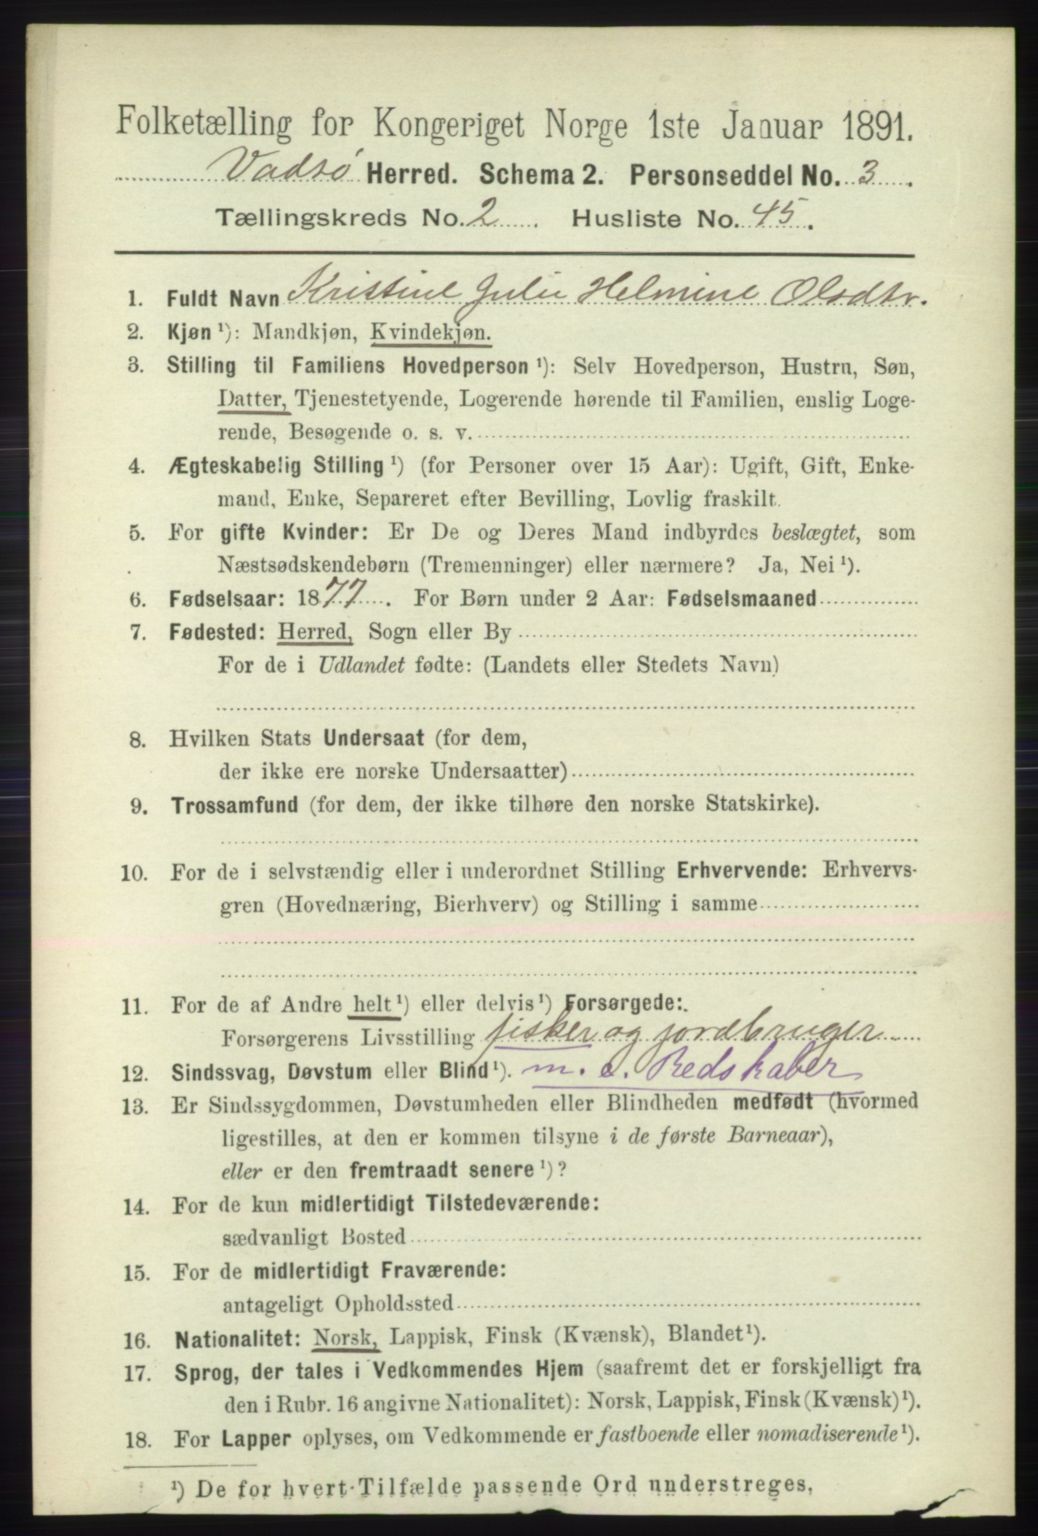 Folketælling for Kongeriget Norge 1ste Januar 1891.
Vadsø Herred. Schema 2. Personseddel No. 3.
Tællingskreds No. 2. Husliste No. 45.
1. Fuldt Navn Kristine Julie Helmine Olsdtr.
2. Kjøn ¹): Mandkjøn, Kvindekjøn.
3. Stilling til Familiens Hovedperson ¹): Selv Hovedperson, Hustru, Søn,
Datter, Tjenestetyende, Logerende hørende til Familien, enslig Loge-
rende, Besøgende o. s. v.
4. Ægteskabelig Stilling ¹) (for Personer over 15 Aar): Ugift, Gift, Enke-
mand, Enke, Separeret efter Bevilling, Lovlig fraskilt.
5. For gifte Kvinder: Er De og Deres Mand indbyrdes beslægtet, som
Næstsødskendebørn (Tremenninger) eller nærmere? Ja, Nei ¹).
6. Fødselsaar: 1877. For Børn under 2 Aar: Fødselsmaaned
7. Fødested: Herred, Sogn eller By
For de i Udlandet fødte: (Landets eller Stedets Navn)
8. Hvilken Stats Undersaat (for dem,
der ikke ere norske Undersaatter)
9. Trossamfund (for dem, der ikke tilhøre den norske Statskirke).
10. For de i selvstændig eller i underordnet Stilling Erhvervende: Erhvervs-
gren (Hovednæring, Bierhverv) og Stilling i samme
11. For de af Andre helt ¹) eller delvis ¹) Forsørgede:
Forsørgerens Livsstilling fisker og jordbruger
12. Sindssvag, Døvstum eller Blind ¹). m. e. Redskaber
13. Er Sindssygdommen, Døvstumheden eller Blindheden medfødt (hvormed
ligestilles, at den er kommen tilsyne i de første Barneaar),
eller er den fremtraadt senere ¹)?
14. For de kun midlertidigt Tilstedeværende:
sædvanligt Bosted
15. For de midlertidigt Fraværende:
antageligt Opholdssted
16. Nationalitet: Norsk, Lappisk, Finsk (Kvænsk), Blandet ¹).
17. Sprog, der tales i Vedkommendes Hjem (saafremt det er forskjelligt fra
den i Rubr. 16 angivne Nationalitet): Norsk, Lappisk, Finsk (Kvænsk) ¹).
18. For Lapper oplyses, om Vedkommende er fastboende eller nomadiserende ¹).
¹) De for hvert Tilfælde passende Ord understreges.